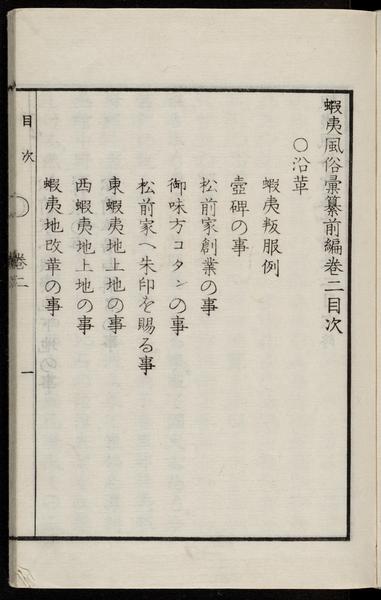 蝦夷風俗彙纂前編卷二目次
〇沿革
蝦夷叛服例
壺碑の事
松前家創業の事
御味方コタンの事
松前家へ朱印を賜る事
東蝦夷地上地の事
西蝦夷地上地の事
蝦夷地改革の事
目次
卷二
一